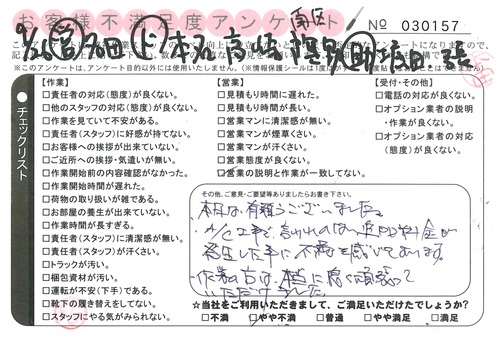 お客様不満足度アンケート
No 030157
※このアンケートは、アンケート目的以外には使用いたしません。
チェックリスト
【作業】
□責任者の対応(態度)が良くない。
□他のスタッフの対応(態度)が良くない。
□作業を見ていて不安がある。
□責任者(スタッフ)に好感が持てない。
□お客様への挨拶が出来ていない。
□ご近所への挨拶・気遣いが無い。
□作業開始前の内容確認がなかった。
□作業開始時間が遅れた。
□荷物の取り扱いが雑である。
□お部屋の養生が出来ていない。
□作業時間が長すぎる。
□責任者(スタッフ)に清潔感が無い。
□責任者(スタッフ)が汗くさい。
□トラックが汚い。
□梱包資材が汚い。
□運転が不安(下手)である。
□靴下の履き替えをしてない。
□スタッフにやる気がみられない。
【営業】
□見積もり時間に遅れた。
□見積もり時間が長い。
□営業マンに清潔感が無い。
□営業マンが煙草くさい。
□営業マンが汗くさい。
□営業態度が良くない。
□営業の説明と作業が一致してない。
【受付・その他】
□電話の対応が良くない。
□オプション業者の説明
・作業が良くない。
□オプション業者の対応
(態度)が良くない。
その他、ご意見・ご要望等ありましたらお書き下さい。
本日は有難うございました。
発生した事に不満を感じております。
作業の方は、本当に良く頑張って
いただけました。
☆当社をご利用いただきまして、ご満足いただけたでしょうか？
□不満 □やや不満 □普通 □やや満足 □満足